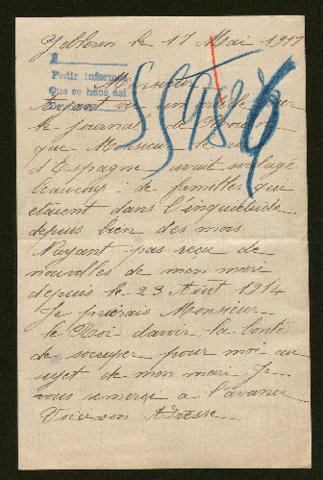 Yebleron le 17 Mai 1917
2
Pedir informes
Que se hace así
Monsieur
Ayant vu un article sur
le journal de Rouen
que Monsieur le roi
d'Espagne avait soulagé
beaucoup de familles qui
etaient dans l'inquietude
depuis bien des mois
N'ayant pas reçu de
nouvelles de mon mari
depuis le 23 Aout 1914
Je prierais Monsieur
le Roi davoir la bonté
de soccuper pour moi au
sujet de mon mari Je
vous remerçie a l'avance
Voici son Adresse